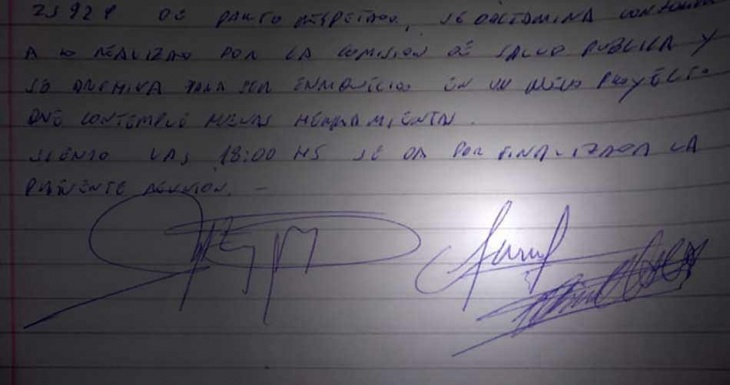 25929 DE PARTO RESPETADO, SE DICTAMINA CONFORME
A LO REALIZADO POR LA COMISION DE SALUD PUBLICA Y
SE DICTAMINA PARA SER EN UN NUEVO PROYECTO
QUE CONTEMPLE NUEVAS HERRAMIENTAS.
SIENDO LAS 18:00 HS SE DA POR FINALIZADA LA
PRESENTE REUNION. -